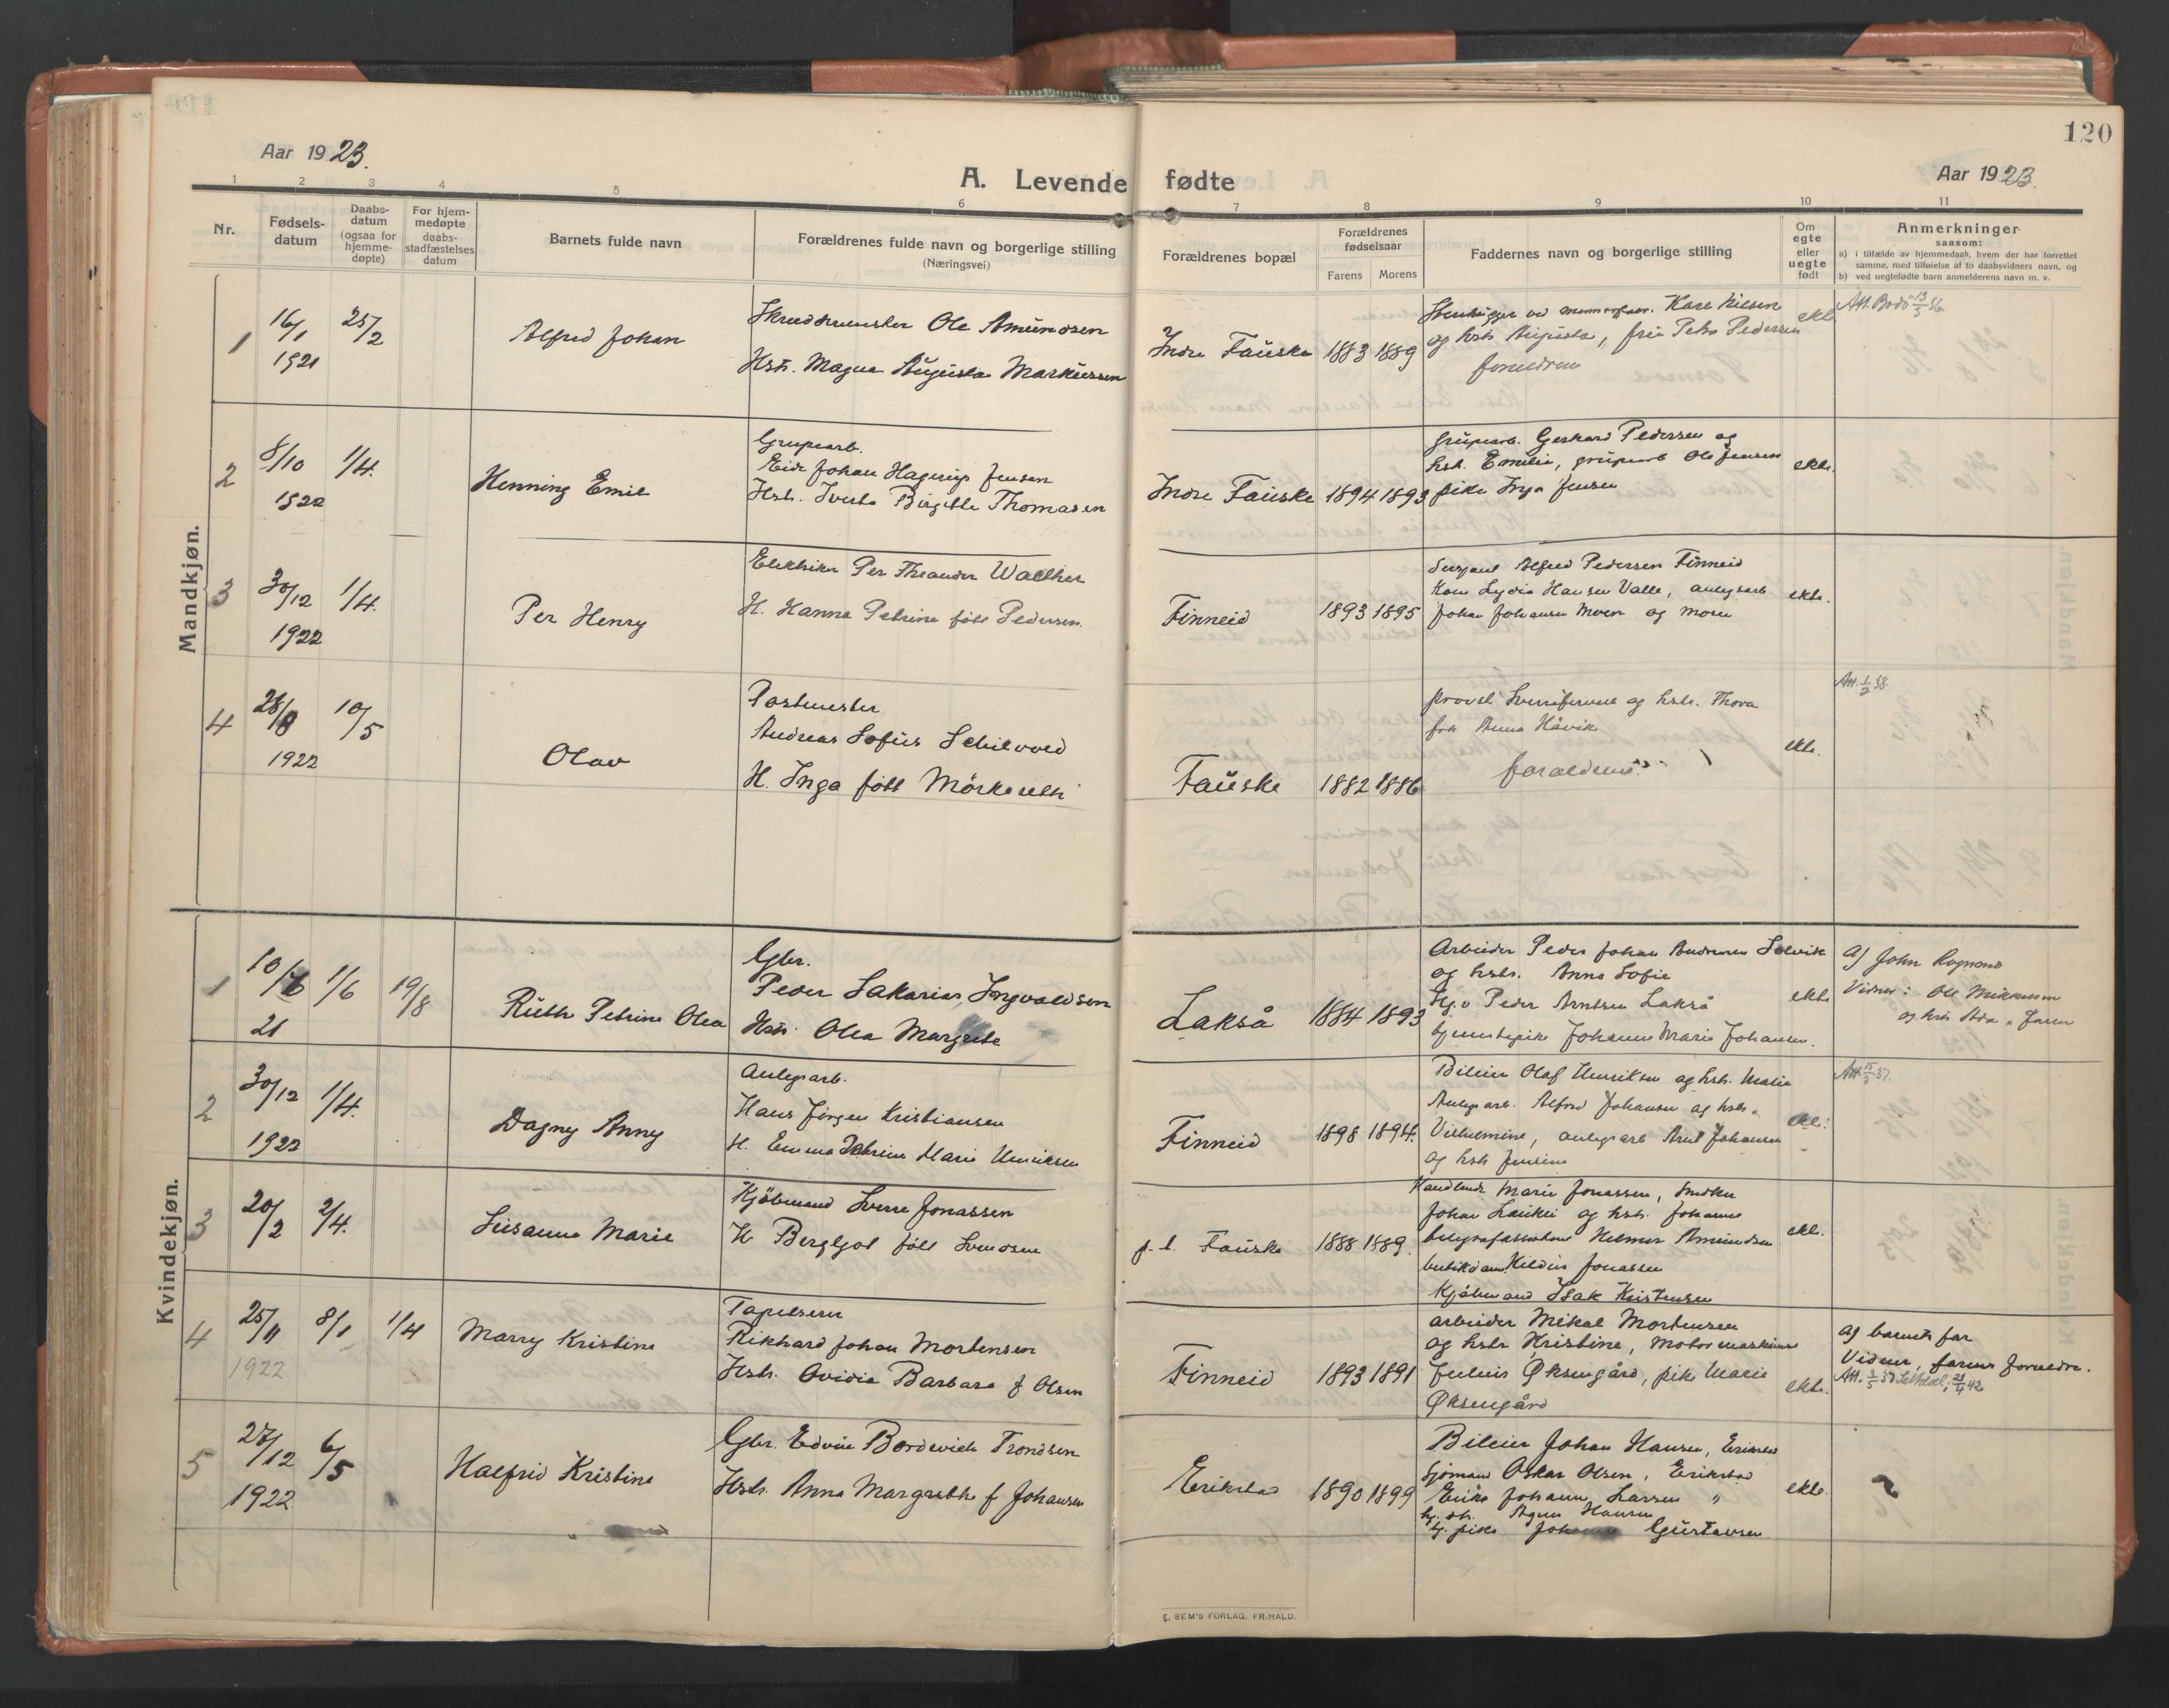 120
Aar 1923.
A. Levende fødte
Aar 1923.
1 2 3 4 5 6 7 8 9 10 11
Nr.
Fødsels-datum
Daabs-datum (ogsaa for hjemme-døpte)
For hjem-medøpte daabs-stadfæstelses datum
Barnets fulde navn
Forældrenes fulde navn og borgerlige stilling
(Næringsvei)
Forældrenes bopæl
Forældrenes fødselsaar
Farens Morens
Faddernes navn og borgerlige stilling
Om egte eller uegte født
Anmerkninger
saasom:
a) i tilfælde av hjemmedaab, hvem der har forrettet samme, med tilføielse af to daabsvidners navn, og
b) ved uegtefødte barn anmelderens navn m. v.
Mandkjøn.
1 16/1 1921 25/2 Alfred Johan
Skredermester Ole Amundsen
Hstr. Magna Augusta Markussen
Indre Fauske 1883 1889
Karl Nilsen
og hstr. Augusta, fru Petra Pedersen
foreldrene
ekte
Att. Bodø 13/3 36
2 8/10 1922 1/4. Henning Emil
Grupearb.
Eide Johan Hagerup Jensen
Hstr. Iverta Birgitte Thomasen
Indre Fauske 1894 1893
Grupearb. Gerhard Pedersen og
hstr. Emilie, grupearb Ole Jensen
pike Inga Jensen
ekte.
3 30/12 1922 1/4. Per Henry
Elektriker Per Theander Walther
H. Hanna Petrine født Pedersen.
Finneid 1893 1895
Alfred Pedersen Finneid
Kone Lydia Hansen Valle, anlegsarb
Johan Johansen Moen og moren
ekte.
4 28/8 1922 10/5 Olav
Postmester
Andreas Sofus
H. Inga født
Fauske 1882 1886
provst og hstr. Thora
frk Anna Håvik
foraldrene
ekte.
Att. 1/2 38.
Kvindekjøn.
1 10/6 21 1/6 19/8 Ruth Petrine Olea
Gbr.
Peder Sakarias Ingvaldsen
Hstr. Olea Margrete
Lakså 1884 1893
Arbeider Peder Johan Andreasen Solvik
og hstr. Anna Sofie
Peder Arntsen Lakså
tjenestepike Johanne Marie Johansen.
ekte
Af John Rognand
Vidner: Ole Mikkelsen
og hstr
2 30/12 1922 1/4. Dagny Anny
Anlegsarb.
Hans Jørgen Kristiansen
H. Emma Marie Henriksen
Finneid 1898 1894.
Bileier Olaf Henriksen og hstr. Malie
Anlegsarb. Alfred Johansen og hstr.
Vilhelmine, anlegsarb Arnt Johansen
og hstr Jensine
ekte.
3 20/2 2/4. Susanne Marie
Kjøbmand Sverre Jonassen
H. Bergljot født Svendsen
p. t. Fauske 1888 1889.
Marie Jonassen, Snekker
Johan og hstr. Johanne
telegrafassistent Helmer Amundsen
butikdame Jonassen
Kjøbmand Isak Kristensen
ekte.
4 25/11 1922 8/1 1/4 Marry Kristine
Tapetserer
Rikhard Johan Mortensen
Hstr. Ovidia Barbara f Olsen
Finneid 1893 1891
arbeider Mikal Mortensen
og hstr Kristine, Motormaskinist
Julius Øksengård, pike Marie
Øksengård
ekte.
af barnets far
Vidner, farens foreldre.
5 27/12 1922. 6/5 Halfrid Kristine
Gbr. Edvin Bordevick Trondsen
Hstr. Anna Margrethe f Johansen
Erikstad 1890 1899
Bileier Johan Hansen, Erikstad
Sjømand Oskar Olsen, Erikstad
Enke Johanna Larsen "
Agnes Hansen
tj. pike Gustavsen.
ekte.
E. SEM'S FORLAG, FR.HALD.